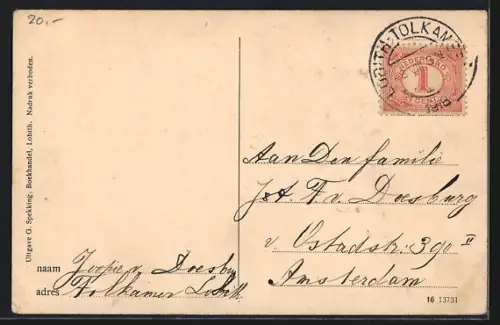 20,-
LOBITH-TOLKAMER
NEDERLAND
1
CENT
Uitgave G. Spekking, Boekhandel, Lobith. Nadruk verboden.
Aan Den familie
J.A. F. v. Doesburg
v. Ostadstr. 390 II
Amsterdam
naam Joopie v. Doesburg
adres Tolkamer Lobith
16 13731